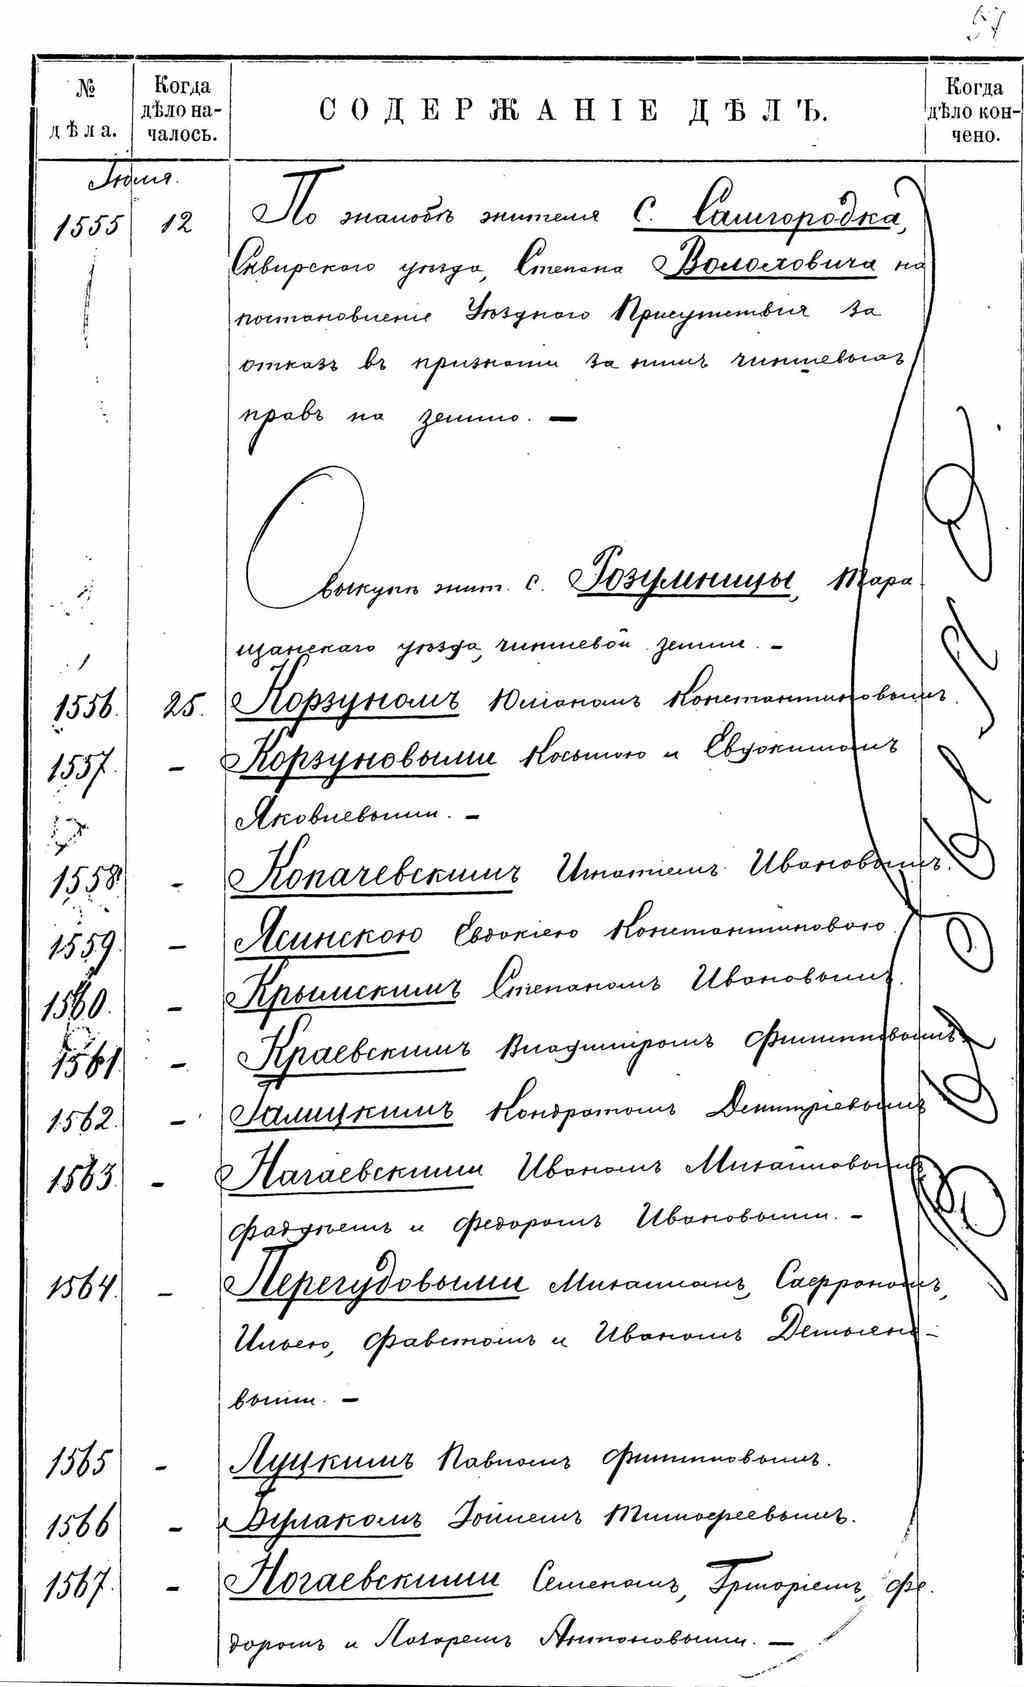 57
№ дѣла.
Когда дѣло на-
чалось.
СОДЕРЖАНІЕ ДѢЛЪ.
Когда дѣло кон-
чено.
Іюля.
1555 12 По жалобѣ жителя с. Самгородка,
Сквирскаго уѣзда, Степана Волоховича на
постановленіе Уѣзднаго Присутствія за
отказъ въ признаніи за нимъ чиншевыхъ
правъ на землю. —
О выкупѣ жит. с. Розумницы, Тара-
щанскаго уѣзда, чиншевой земли. —
1556. 25. Корзуномъ Юліаномъ Константиновымъ.
1557. — Корзуновыми Косьмою и Евдокимомъ
Яковлевыми. —
1558. — Копачевскимъ Игнатіемъ Ивановымъ.
1559. — Ясинскою Евдокіею Константиновою.
1560. — Крымскимъ Степаномъ Ивановымъ.
1561 — Краевскимъ Владиміромъ Филипповымъ.
1562. — Галицкимъ Кондратомъ Дмитріевымъ
1563. — Нагаевскими Иваномъ Михайловымъ,
Фаддѣемъ и Федоромъ Ивановыми. —
1564. — Перегудовыми Михаиломъ, Сафрономъ,
Ильею, Фавстомъ и Иваномъ Демьяно-
выми. —
1565 — Луцкимъ Павломъ Филипповымъ.
1566 — Булакомъ Тимофеевымъ.
1567. — Ногаевскими Семеномъ, Григоріемъ, Фе-
доромъ и Лазаремъ Антоновыми. —
Выдѣлено.